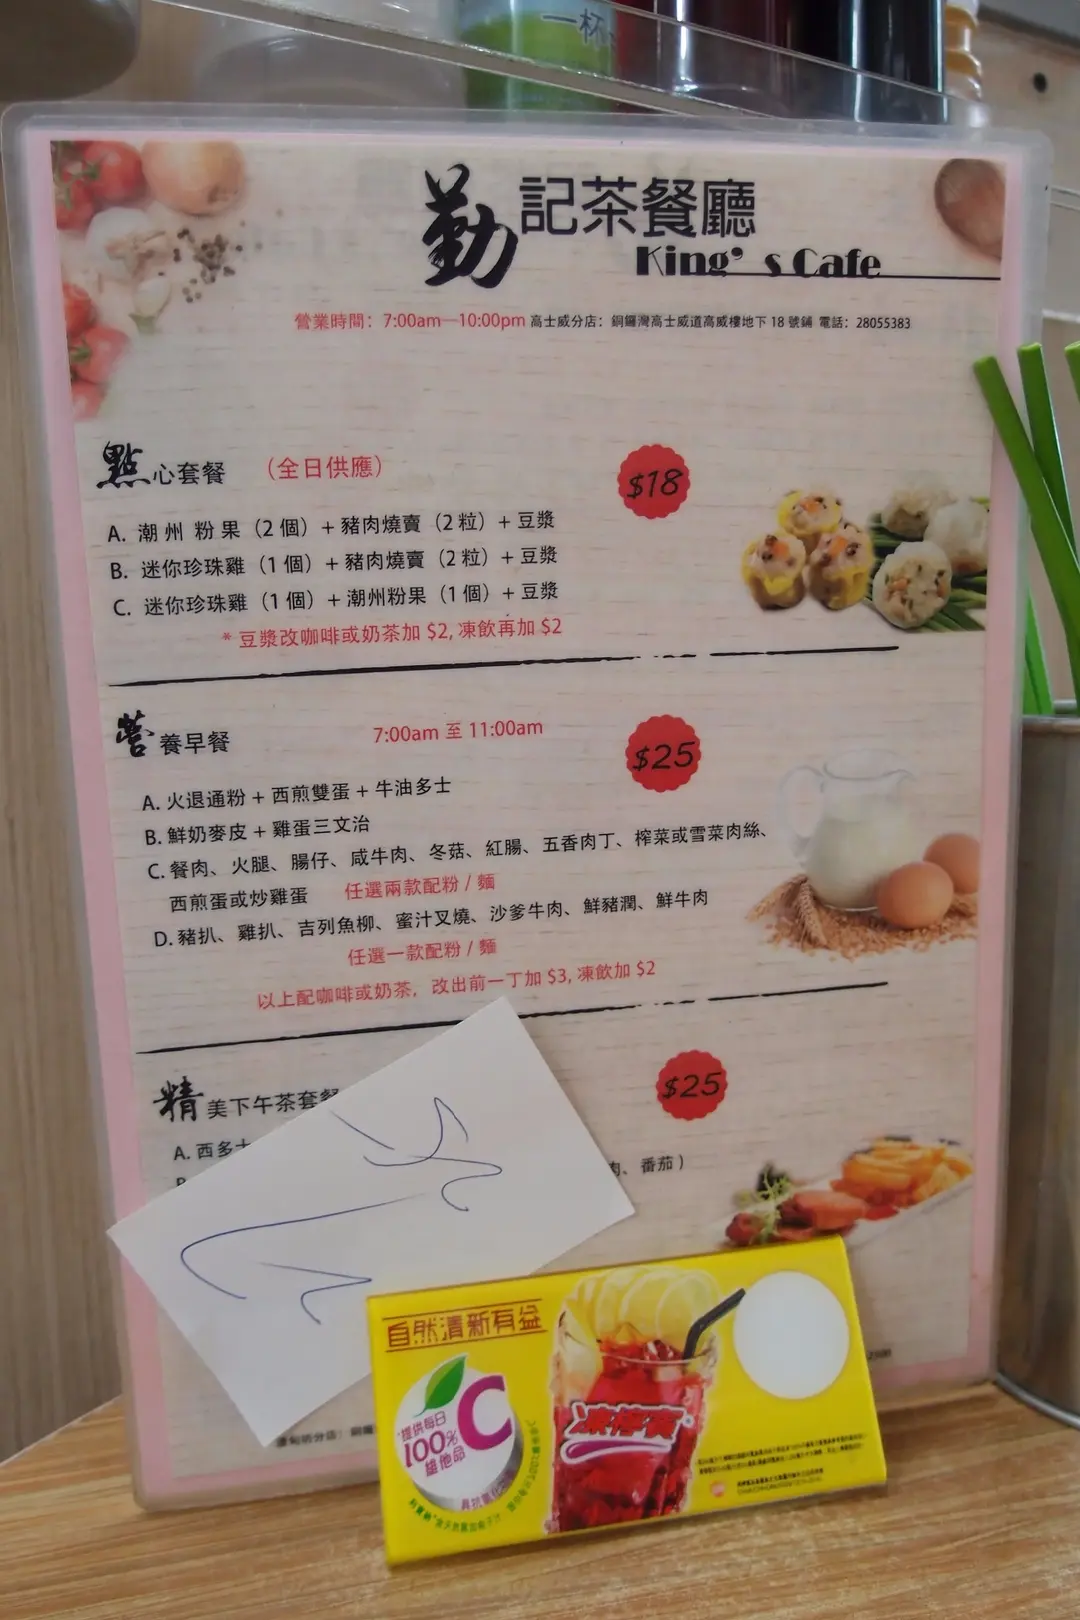 一杯
勤記茶餐廳
King's Cafe
營業時間：7:00am—10:00pm 高士威分店：銅鑼灣高士威道高威樓地下 18 號鋪 電話：28055383
點心套餐 （全日供應） $18
A. 潮州粉果（2 個）+ 豬肉燒賣（2 粒）+ 豆漿
B. 迷你珍珠雞（1 個）+ 豬肉燒賣（2 粒）+ 豆漿
C. 迷你珍珠雞（1 個）+ 潮州粉果（1 個）+ 豆漿
* 豆漿改咖啡或奶茶加 $2, 凍飲再加 $2
營養早餐 7:00am 至 11:00am $25
A. 火退通粉 + 西煎雙蛋 + 牛油多士
B. 鮮奶麥皮 + 雞蛋三文治
C. 餐肉、火腿、腸仔、咸牛肉、冬菇、紅腸、五香肉丁、榨菜或雪菜肉絲、
西煎蛋或炒雞蛋 任選兩款配粉 / 麵
D. 豬扒、雞扒、吉列魚柳、蜜汁叉燒、沙爹牛肉、鮮豬潤、鮮牛肉
任選一款配粉 / 麵
以上配咖啡或奶茶，改出前一丁加 $3, 凍飲加 $2
精美下午茶套餐 $25
A. 西多士
肉、番茄）
自然清新有益
提供每日
100%
維他命
C
凍檸賓